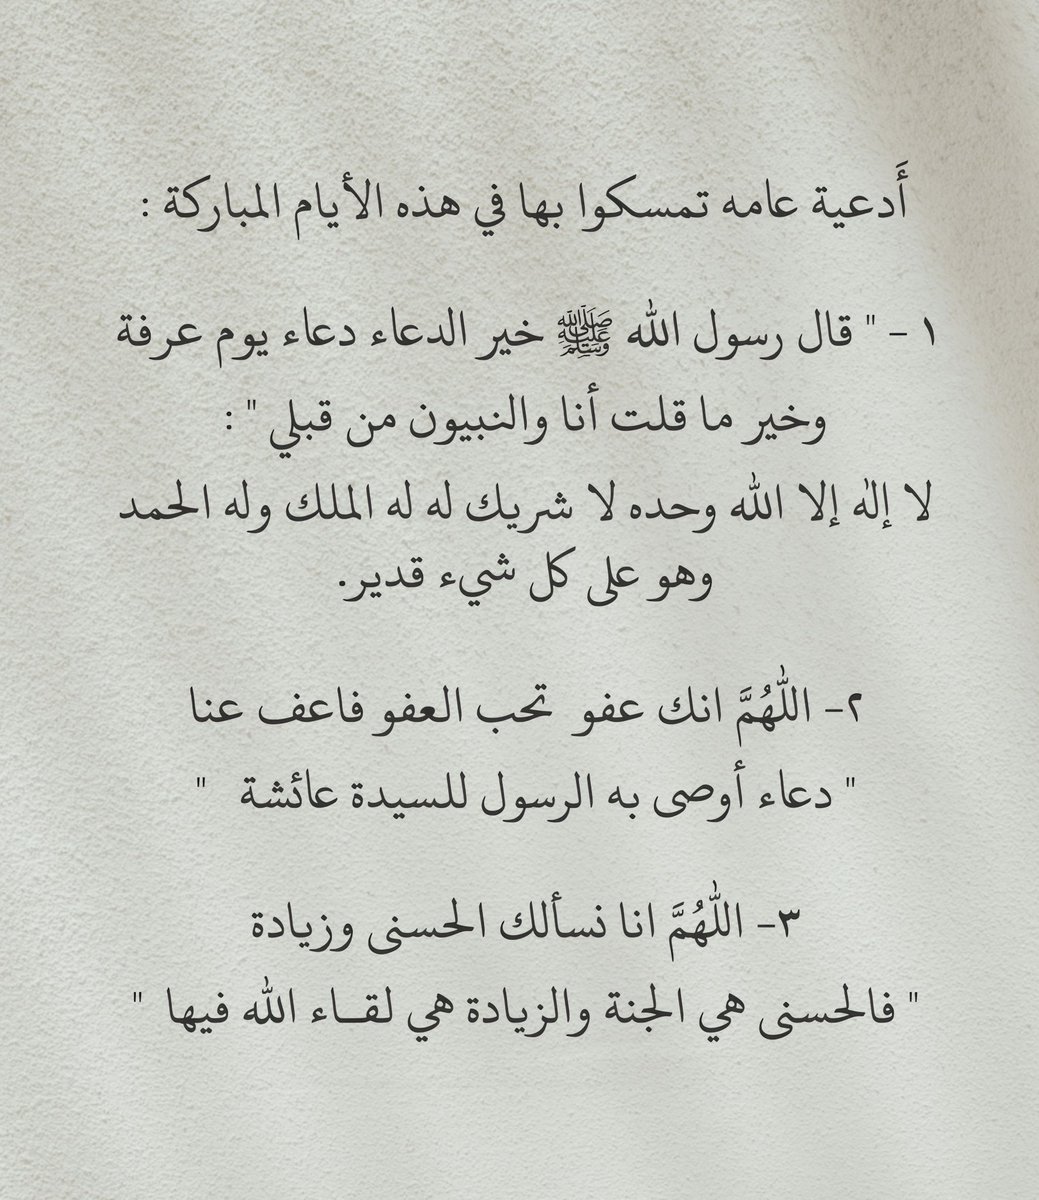 أَدعية عامه تمسكوا بها في هذه الأيام المباركة :
١ - " قال رسول الله ﷺ خير الدعاء دعاء يوم عرفة
وخير ما قلت أنا والنبيون من قبلي " :
لا إلٰه إلا الله وحده لا شريك له له الملك وله الحمد
وهو على كل شيء قدير.
٢- اللّٰهُمَّ انك عفو تحب العفو فاعف عنا
" دعاء أوصى به الرسول للسيدة عائشة "
٣- اللّٰهُمَّ انا نسألك الحسنى وزيادة
" فالحسنى هي الجنة والزيادة هي لقـاء الله فيها "